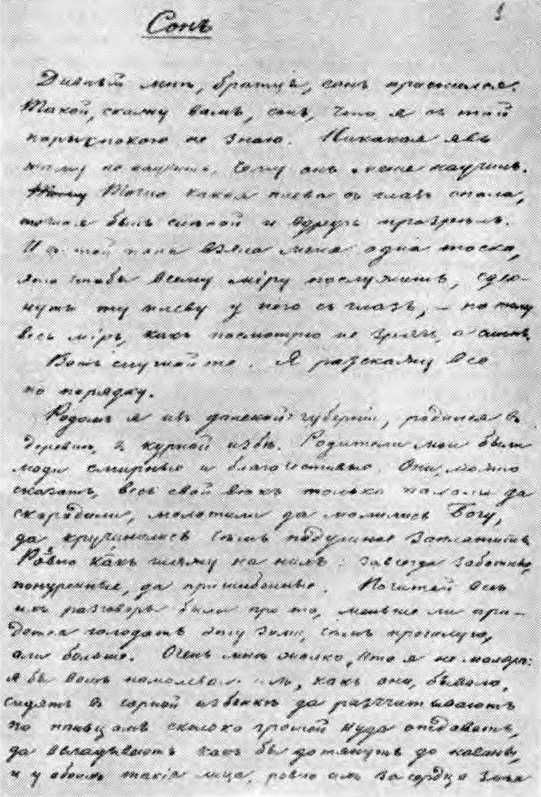 1
Сонъ
Дивный мнѣ, братцы, сонъ приснился.
Такой, скажу вамъ, сонъ, что я съ той
поры покою не знаю. Никакая явь
не научитъ, чему онъ меня научилъ.
Точно какая плева съ глазъ спала,
точно я былъ слѣпой и вдругъ прозрѣлъ.
И съ той поры взяла меня одна тоска,
это чтобы всему міру послужить, сдер-
нуть ту плеву у него съ глазъ, – потому
весь міръ, какъ посмотрю не зрячъ, а слѣпъ.
Вотъ слушайте. Я разскажу все
по порядку.
Родомъ я изъ губерніи, родился въ
деревнѣ, въ курной избѣ. Родители мои были
люди смирные и благочестивые. Они, можно
сказать, весь свой вѣкъ только пахали да
скородили, молотили да молились Богу,
да кручинились чѣмъ подушное заплатить
Ровно какъ гляжу на нихъ: завсегда заботные,
понуренные, да пришибенные. Почитай весь
ихъ разговоръ былъ про то, меньше ли при-
дется голодать эту зиму, чѣмъ прошлую,
али больше. Очень мнѣ жалко, что я не маляръ:
я бы вамъ намалевалъ ихъ, какъ они, бывало,
сидятъ въ черной избенкѣ да разсчитываютъ
по пальцамъ сколько грошей куда отдавать,
да выгадываютъ какъ бы дотянуть до
и у обоихъ такія лица, ровно имъ за сердце змѣя